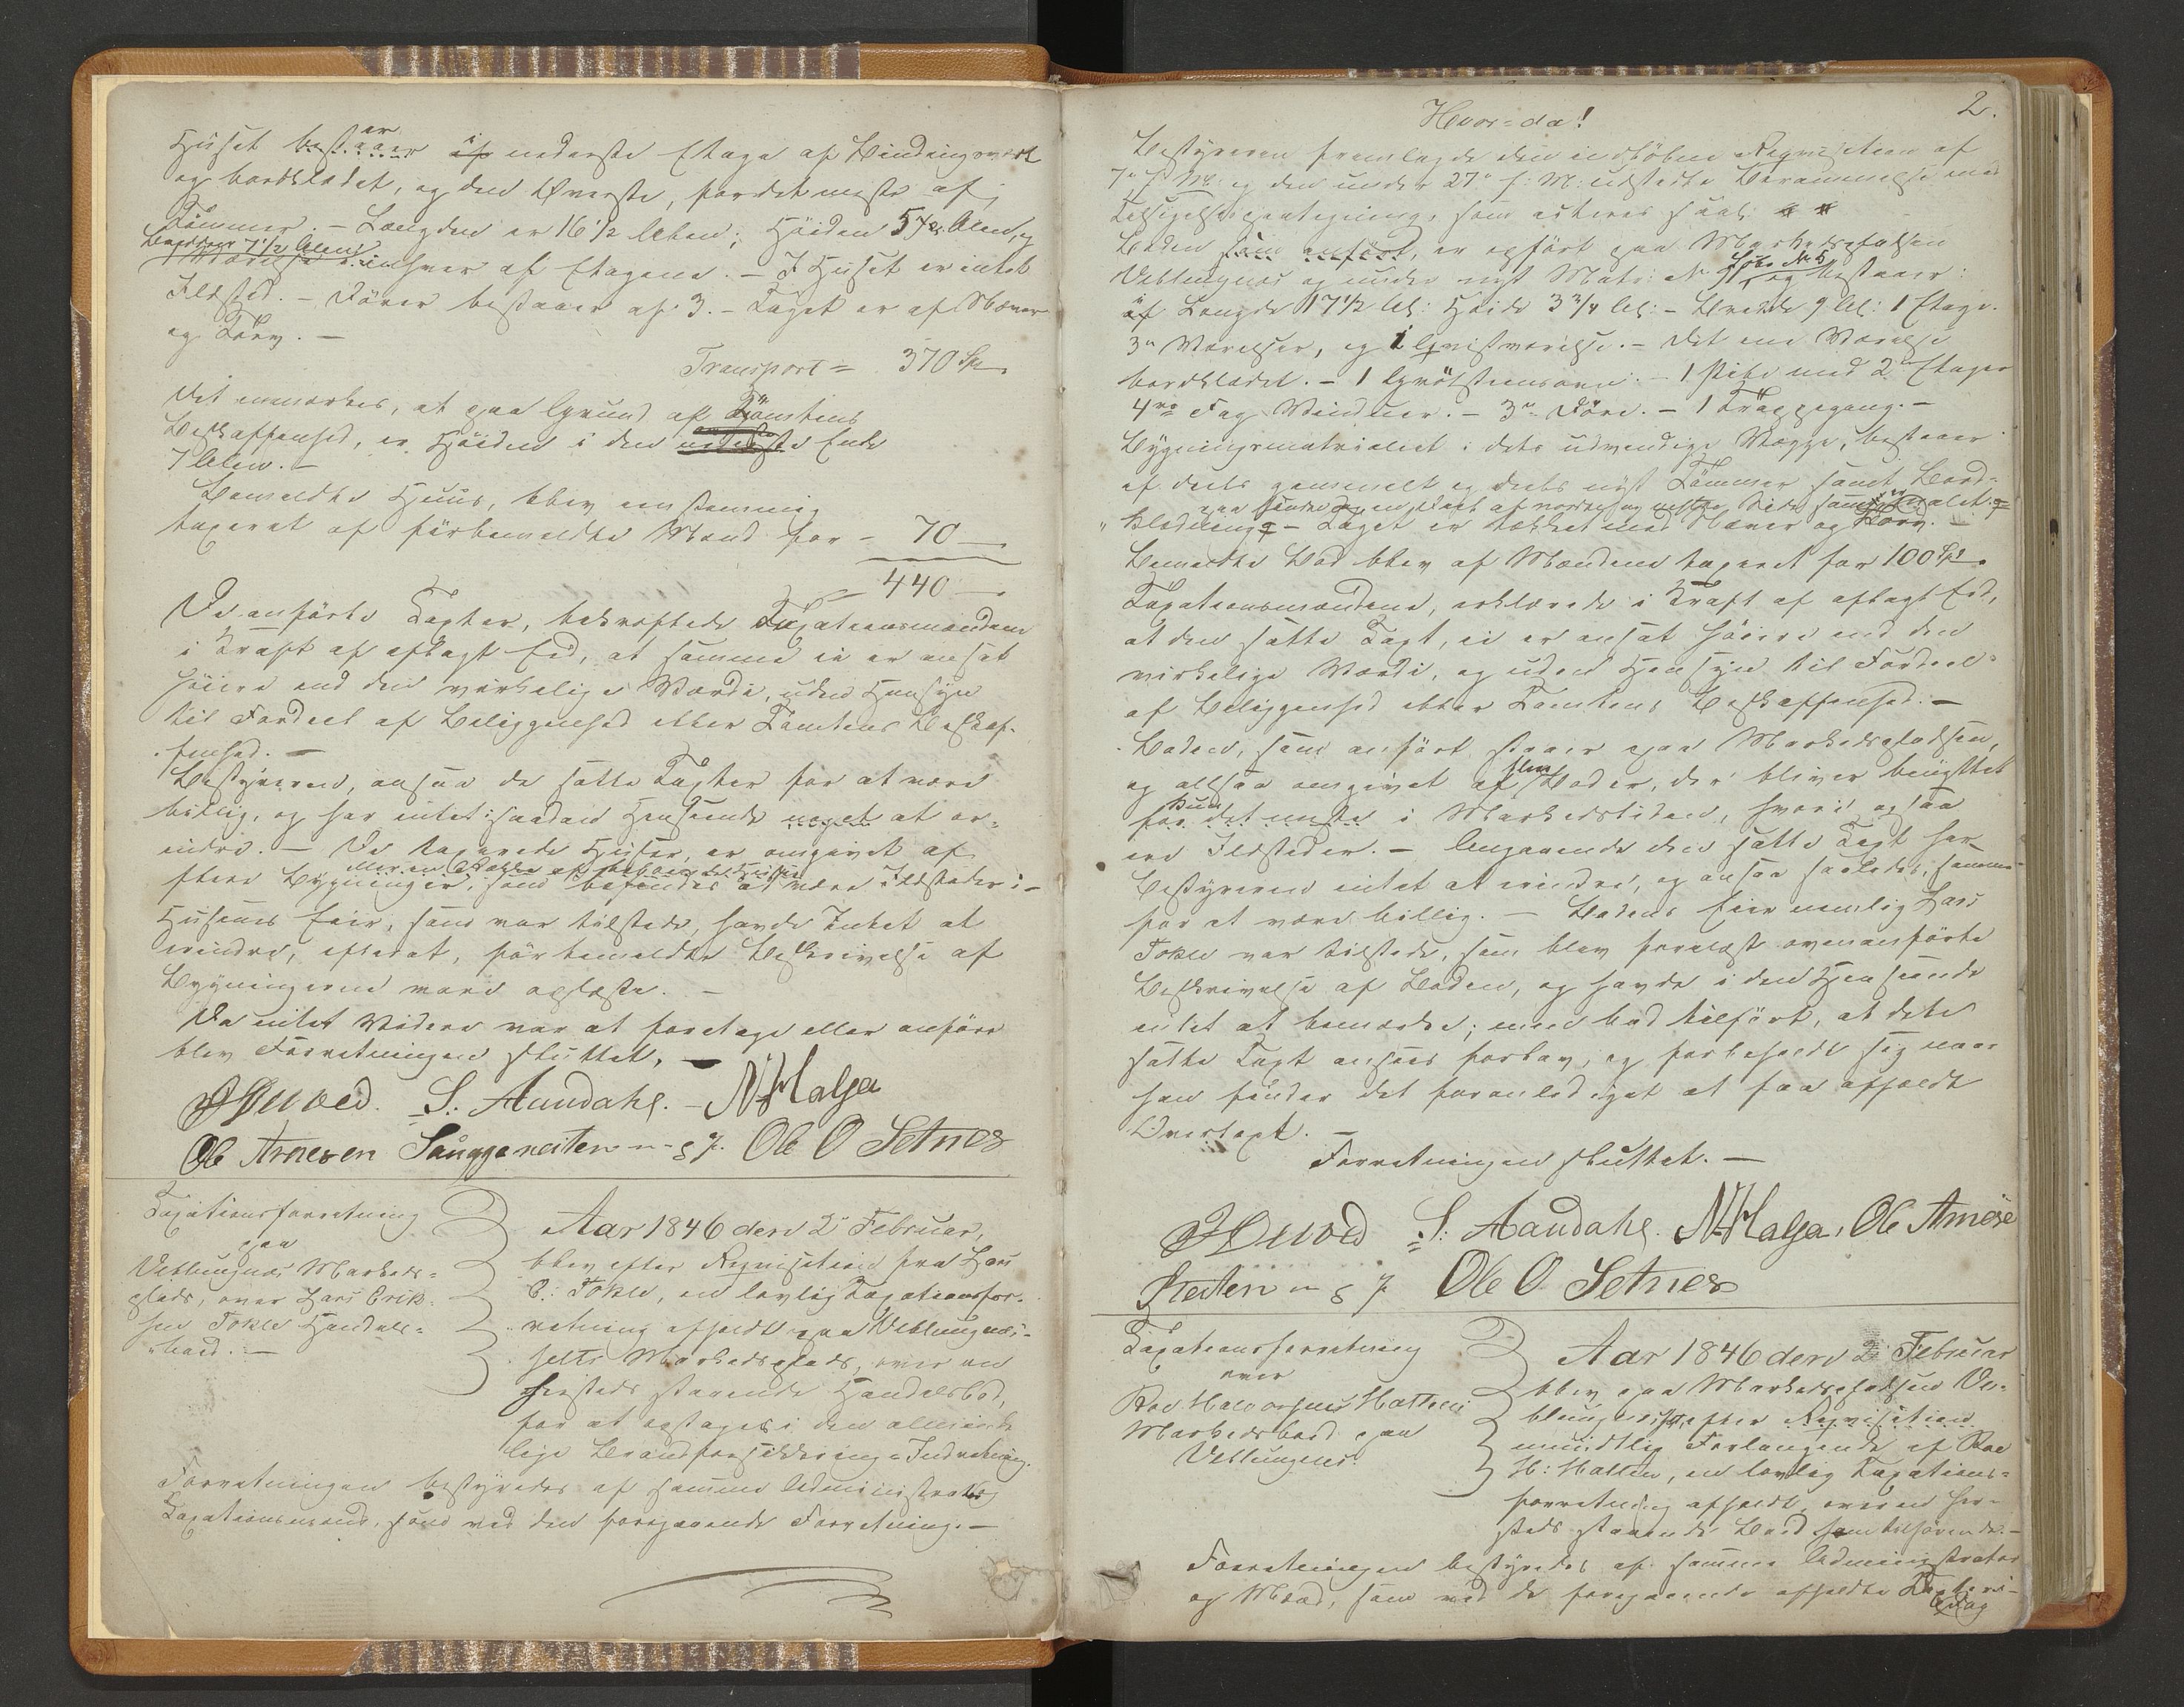 Huset bestaaer er i nederste Etage af Bindingsværk
og bordklædet, og den Øverste, for det meste af
Tömmer. – Længden er 16 1/2 Alen; Höiden 5 1/2 Alen, og
Bredden 7 1/2 Alen.
1 Værelse i enhver af Etagene. – I Huset er intet
Ildsted. – Dörer bestaaer af 3. – Taget er af Næver
og Törv. –
Transport = 370 Sp
Det bemærkes, at paa Grund af Tömtens
Beskaffenhed, er Höiden i den nederste Ende
7 Alen. –
Bemeldte Huus, blev eenstemmig
taxeret af förbemeldte Mænd for – 70 –
440 –
De anförte Taxter, bekræftede Taxationsmændene
i Kraft af aflagt Eed, at samme ei er ansat
höiere end den virkelige Værdi, uden Hensyn
til Fordeel af Beliggenhed eller Tomtens Beskaf-
fenhed. –
Bestyreren, ansaa de satte Taxter for at være
billig, og har intet i saadan Henseende noget at er-
indre. – De taxerede Huser, er omgivet af
flere Bygninger, som befindes at være Ildsteder i –
Husenes Eier, som var tilstede, havde Intet at
erindre, efterat, förbemeldte Beskrivelse af
Bygningerne være oplæste. –
Da intet Videre var at foretage eller anföre
blev Forretningen sluttet. –
S. Aandahl. – N. Halsa
Ole Arnesen Sougge neiten m. p. P. Ole O Setnes
Taxationsforretning
paa
Veblungnæs Markeds-
plads, over Lars Erik-
sen Tokle Handels-
boed. –
Aar 1846 den 2 Februar,
blev efter Reqvisition fra Lars
E. Tokle, en lovlig Taxationsfor-
retning afholdt paa Veblungnæs-
sets Markedsplads, over en
hersteds staaende Handelsbod,
for at optages i den alminde-
lige Brandforsikkrings-Indretning.
Forretningen bestyredes af samme Administrator og
Taxationsmænd, som ved den foregaaende Forretning. –
2.
Hvor-da!
Bestyreren fremlagde den indkobne Reqvisition af
7de f. M. og den under 27de f. M. udstedte Berammelse med
Tilsigelsespaategning, som acteres saal. # #
Boden som anfört, er opfört paa Markedspladsen
Veblungnæs og under nyt Matr. Nr. 91, Löbe No 5, og bestaaer:
af Længde 17 1/2 Al: Höide 3 3/4 Al: – Bredde 9 Al: 1 Etage.
3de Værelser, og 1 Qvistværelse. – Det ene Værelse
bordklædet. – 1 Grötsteensovn. – 1 Pibe med 2de Etager
4re Fag Vinduer. – 3de Döre. – 1 Trappegang. –
Bygningsmaterialet i dets udvendige Vægge, bestaaer
af deels gammelt og deels nyt Tömmer samt Bord-
klædning – Taget er tækket med Næver og Törv.
Bemeldte Bod blev af Mændene taxeret for 100 Sp.
Taxationsmændene, erklærede i Kraft af aflagt Eed,
at den satte Taxt, ei er ansat höiere end den
virkelige Værdi, og uden Hensyn til Fordeel
af Beliggenhed eller Tomtens Beskaffenhed. –
Boden, som anfört staaer paa Markedspladsen,
og altsaa omgivet af flere Boder, der bliver benyttet
kun
for det meste i Markedstiden, hvori ogsaa
ere Ildsteder. – Angaaende den satte Taxt har
Bestyreren intet at erindre, og ansaa saaledes, samme
for at være billig. – Bodens Eier nemlig Lars
Tokle var tilstede, som blev forelæst ovenanförte
Beskrivelse af Boden, og havde i den Henseende
intet at bemærke; men bad tilfört, at dets
satte Taxt ansees forlav, og forbeholdt sig naar
han finder det foranlediget at faa afholdt
Overtaxt. –
Forretningen sluttet. –
S. Aandahl. N. Halsa, Ole Arnese
Sneiten m p P Ole O. Setnes
Taxationsforretning
over
Roe Halvorsens Hatten
Markedsbod paa
Veblungnes.
Aar 1846 den 2 Februar
blev paa Markedspladsen Ve-
blungnæsset, efter Reqvisition
mundtlig Forlangende af Roe
H. Hatten, en lovlig Taxations-
forretning afholdt, over en her-
steds staaende Boed ham tilhörende. –
Forretningen bestyredes af samme Administrator
og Mænd, som ved de foregaaende afholdte Taxter. –